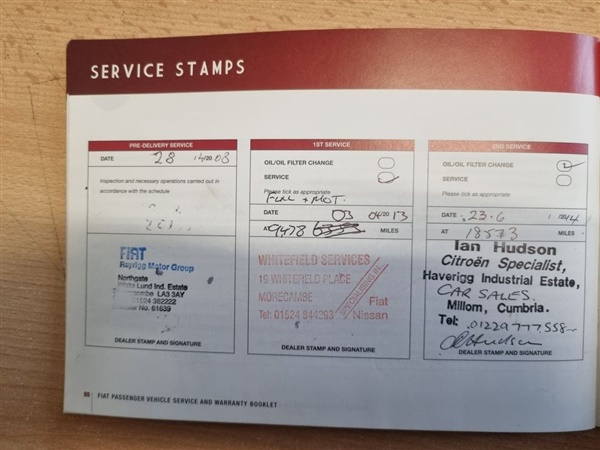 SERVICE STAMPS
PRE-DELIVERY SERVICE
DATE 28 / 4/20 08
Inspection and necessary operations carried out in
accordance with the schedule
FIAT
Rayrigg Motor Group
Northgate
White Lund Ind. Estate
LA3 3AY
01524 382222
No. 61639
DEALER STAMP AND SIGNATURE
1ST SERVICE
OIL/OIL FILTER CHANGE
SERVICE
Please tick as appropriate
FULL + MOT.
DATE 03 04/20 13
AT 9478 MILES
WHITEFIELD SERVICES
19 WHITEFIELD PLACE
MORECAMBE
Tel: 01524 844293
Fiat
Nissan
DEALER STAMP AND SIGNATURE
2ND SERVICE
OIL/OIL FILTER CHANGE
SERVICE
Please tick as appropriate
DATE 23.6 /20 14
AT 18573 MILES
Ian Hudson
Citroën Specialist,
Haverigg Industrial Estate,
CAR SALES.
Millom, Cumbria.
Tel: 01229 777558
DEALER STAMP AND SIGNATURE
FIAT PASSENGER VEHICLE SERVICE AND WARRANTY BOOKLET